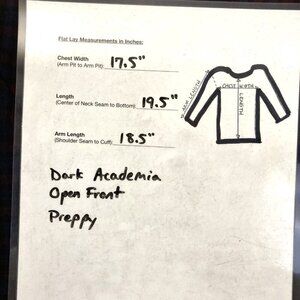 Flat Lay Measurements in Inches:
Chest Width
(Arm Pit to Arm Pit) 17.5"
Length
(Center of Neck Seam to Bottom) 19.5"
Arm Length
(Shoulder Seam to Cuff) 18.5"
ARM LENGTH
CHEST WIDTH
LENGTH
Dark Academia
Open Front
Preppy